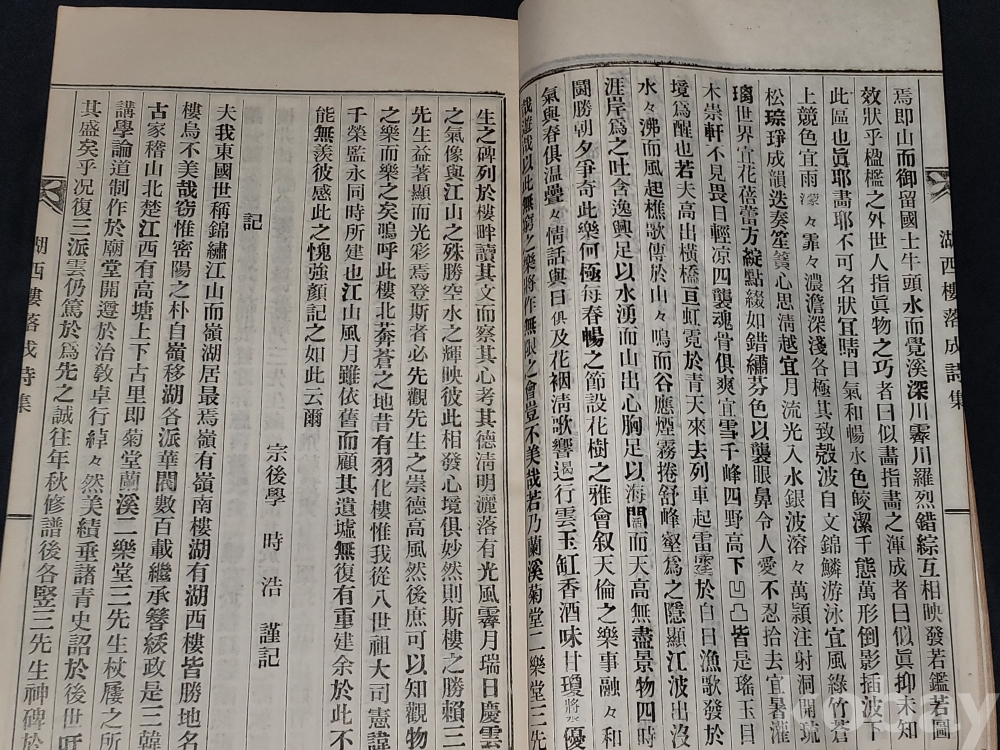 湖西樓落成詩集
焉即山而御留國土牛頭水而覺溪深川霽川羅烈錯綜互相映發若鑑若圖
效狀乎楹檻之外世人指眞物之巧者曰似畵指畵之渾成者曰似眞抑未知
此區也眞耶畵耶不可名狀宜晴日氣和暢水色皎潔千態萬形倒影插波下
上競色宜雨濛々霏々濃澹深淺各極其致縠波自文錦鱗游泳宜風綠竹蒼
松琮琤成韻迭奏笙簧心思淸越宜月流光入水銀波溶々萬頴注射洞開琉
璃世界宜花蓓蕾方綻點綴如錯繡芬色以襲眼鼻令人愛不忍拾去宜暑灌
木崇軒不見畏日輕凉四襲魂骨俱爽宜雪千峰四野高下凹凸皆是瑤玉目
境爲醒也若夫高出橫橋亘虹霓於靑天來去列車起雷霆於白日漁歌發於
水々沸而風起樵歌傳於山々鳴而谷應煙霧捲舒峰壑爲之隱顯江波出沒
涯岸爲之吐含逸興足以水湧而山出心胸足以海闊而天高無盡景物四時
鬪勝朝夕爭奇此樂何極每春暢之節設花樹之雅會叙天倫之樂事融々和
氣與春俱温疊々情話與日俱及花裀淸歌響遏行雲玉缸香酒味甘瓊將永優
哉遊哉以此無窮之樂將作無限之會豈不美哉若乃蘭溪菊堂二樂堂三先
生之碑列於樓畔讀其文而察其心考其德淸明灑落有光風霽月瑞日慶雲
之氣像與江山之殊勝空水之輝映彼此相發心境俱妙然則斯樓之勝賴三
先生益著顯而光彩焉登斯者必先觀先生之崇德高風然後庶可以知觀物
之樂而樂之矣嗚呼此樓北莽蒼之地昔有羽化樓惟我從八世祖大司憲諱
千榮監永同時所建也江山風月雖依舊而顧其遺墟無復有重建余於此不
能無羨彼感此之愧強顏記之如此云爾
宗後學 時浩 謹記
記
夫我東國世稱錦繡江山而嶺湖居最焉嶺有嶺南樓湖有湖西樓皆勝地名
樓烏不美哉窃惟密陽之朴自嶺移湖各派華閥數百載繼承簪綬政是三韓
古家稽山北楚江西有高塘上下古里即菊堂蘭溪二樂堂三先生杖屨之所
講學論道制作於廟堂開遵於治敎卓行綽々然美績垂諸靑史詔於後世
其盛矣乎况復三派雲仍篤於爲先之誠往年秋修譜後各竪三先生神碑於
湖西樓落成詩集